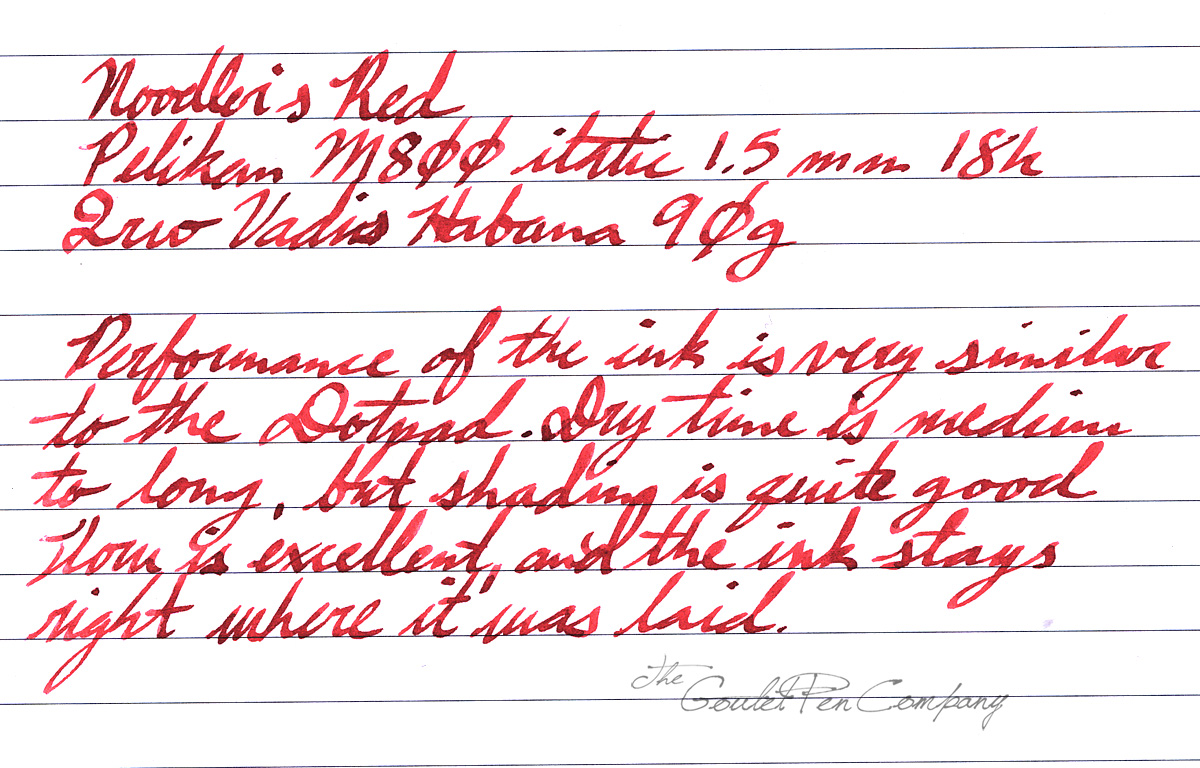 Noodler's Red
Pelikan M800 italic 1.5 mm 18k
Quo Vadis Habana 90g
Performance of the ink is very similar
to the Dotpad. Dry time is medium
to long, but shading is quite good
Flow is excellent, and the ink stays
right where it was laid.
The Goulet Pen Company